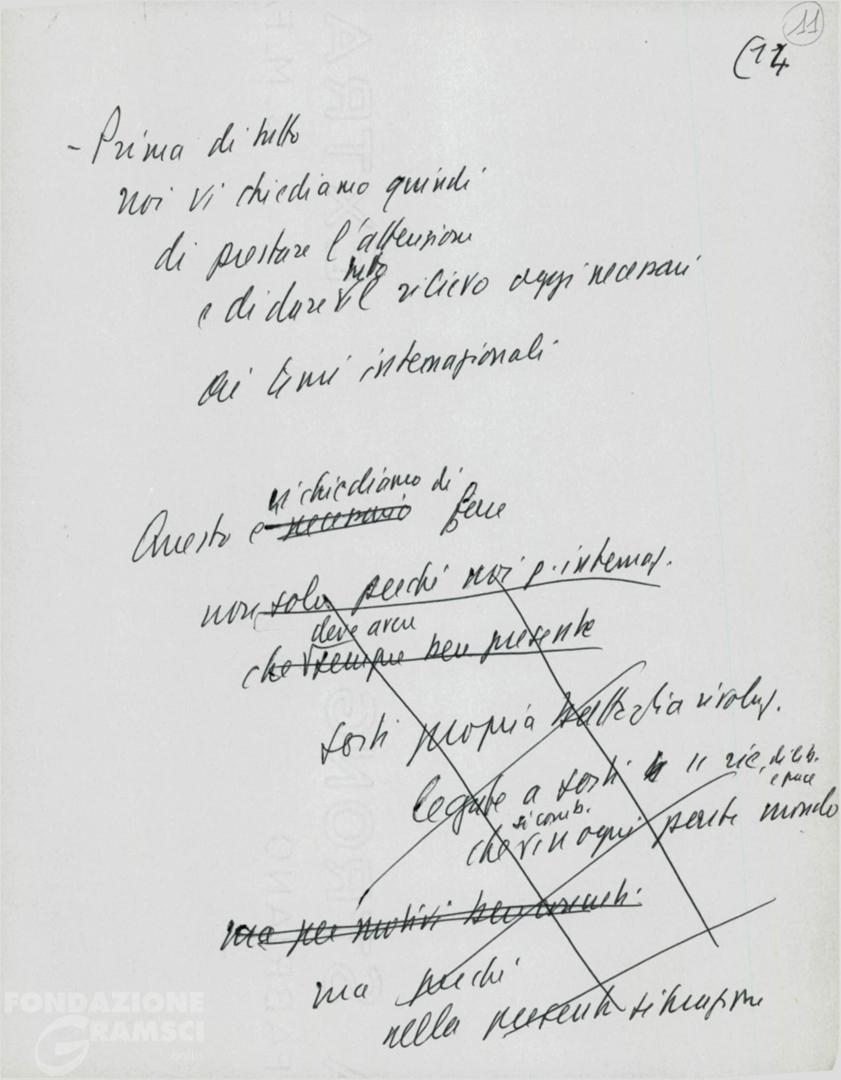 11
(14
- Prima di tutto
noi vi chiediamo quindi
di prestare l'attenzione
tutto
e di dare il rilievo oggi necessari
ai temi internazionali
vi chiediamo di
Questo è necessario fare
non solo perché noi p. internaz.
deve avere
che sempre ben presente
sorti propria battaglia rivoluz.
legate a sorti
di lib.
e pace
si comb.
che in ogni parte mondo
ma per motivi ben
ma perché
nella presente situazione
FONDAZIONE
GRAMSCI
onlus
FABRIANO